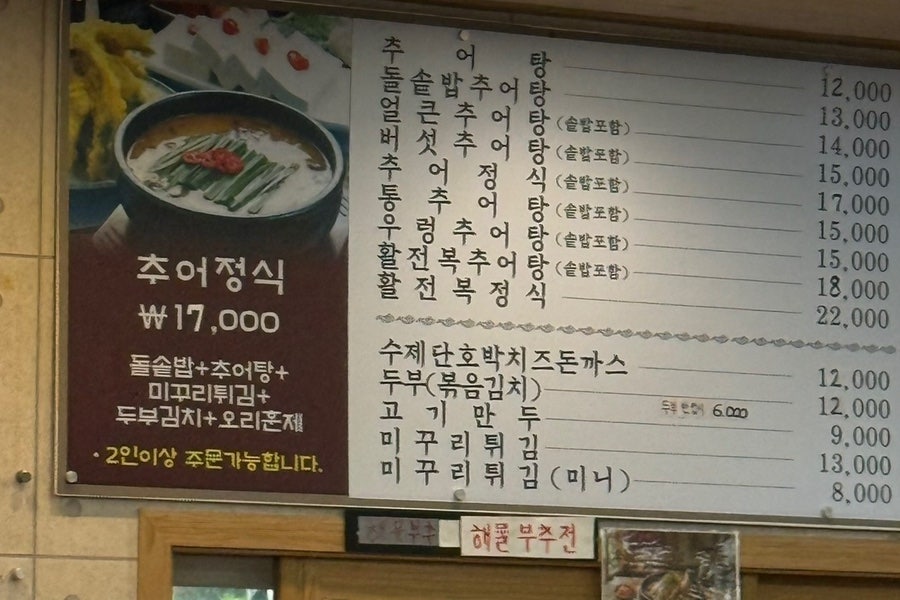 추어정식
₩17,000
돌솥밥+추어탕+
미꾸리튀김+
두부김치+오리훈제
· 2인이상 주문가능합니다.
추어탕 12,000
돌솥밥추어탕 13,000
얼큰추어탕(솥밥포함) 14,000
버섯추어탕(솥밥포함) 15,000
추어정식(솥밥포함) 17,000
통추어탕(솥밥포함) 15,000
우렁추어탕(솥밥포함) 15,000
활전복추어탕(솥밥포함) 18,000
활전복정식 22,000
수제단호박치즈돈까스 12,000
두부(볶음김치) 12,000
고기만두 9,000
두부 6.000
미꾸리튀김 13,000
미꾸리튀김(미니) 8,000
해물부추전